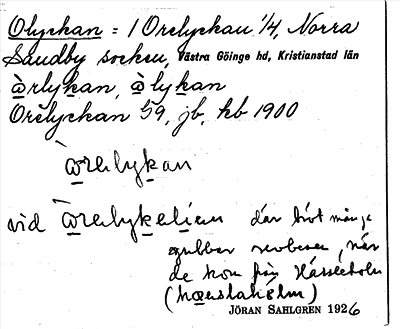 Olyckan = / Orelyckan 1/4, Norra
Sandby socken, Västra Göinge hd, Kristianstad län
ꞷ̀rlykan, ꞷ̀lykan
Orelyckan 59, jb, kb 1900
ꞷ̀relykan
vid ꞷ̀relykelien där bröt många
gubbar, när
de kom från Hässleholm
JÖRAN SAHLGREN 1926